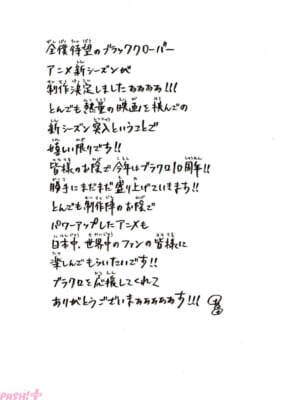 全僕待望のブラッククローバー
アニメ新シーズンが
制作決定しましたああああ!!!
とんでも熱量の映画を挟んでの
新シーズン突入ということで
嬉しい限りです!!
皆様のお陰で今年はブラクロ10周年!!
勝手にまだまだ盛り上げていきます!!
とんでも制作陣のお陰で
パワーアップしたアニメも
日本中、世界中のファンの皆様に
楽しんでもらいたいです!!
ブラクロを応援してくれて
ありがとうございまああああす!!!
PASH!+